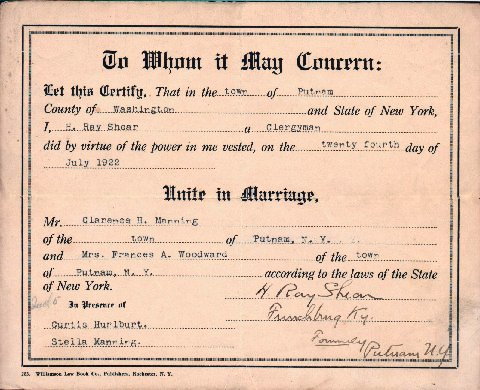 To Whom it May Concern:
Let this Certify, That in the town of Putnam
County of Washington and State of New York,
I, H. Ray Shear a Clergyman
did by virtue of the power in me vested, on the twenty fourth day of
July 1922
Unite in Marriage,
Mr. Clarence H. Manning
of the town of Putnam, N. Y.
and Mrs. Frances A. Woodward of the town
of Putnam, N. Y. according to the laws of the State
of New York.
H Ray Shear
In Presence of
Curtis Hurlburt.
Stella Manning.
Formerly Putnam N.Y.
Williamson Law Book Co., Publishers, Rochester, N. Y.